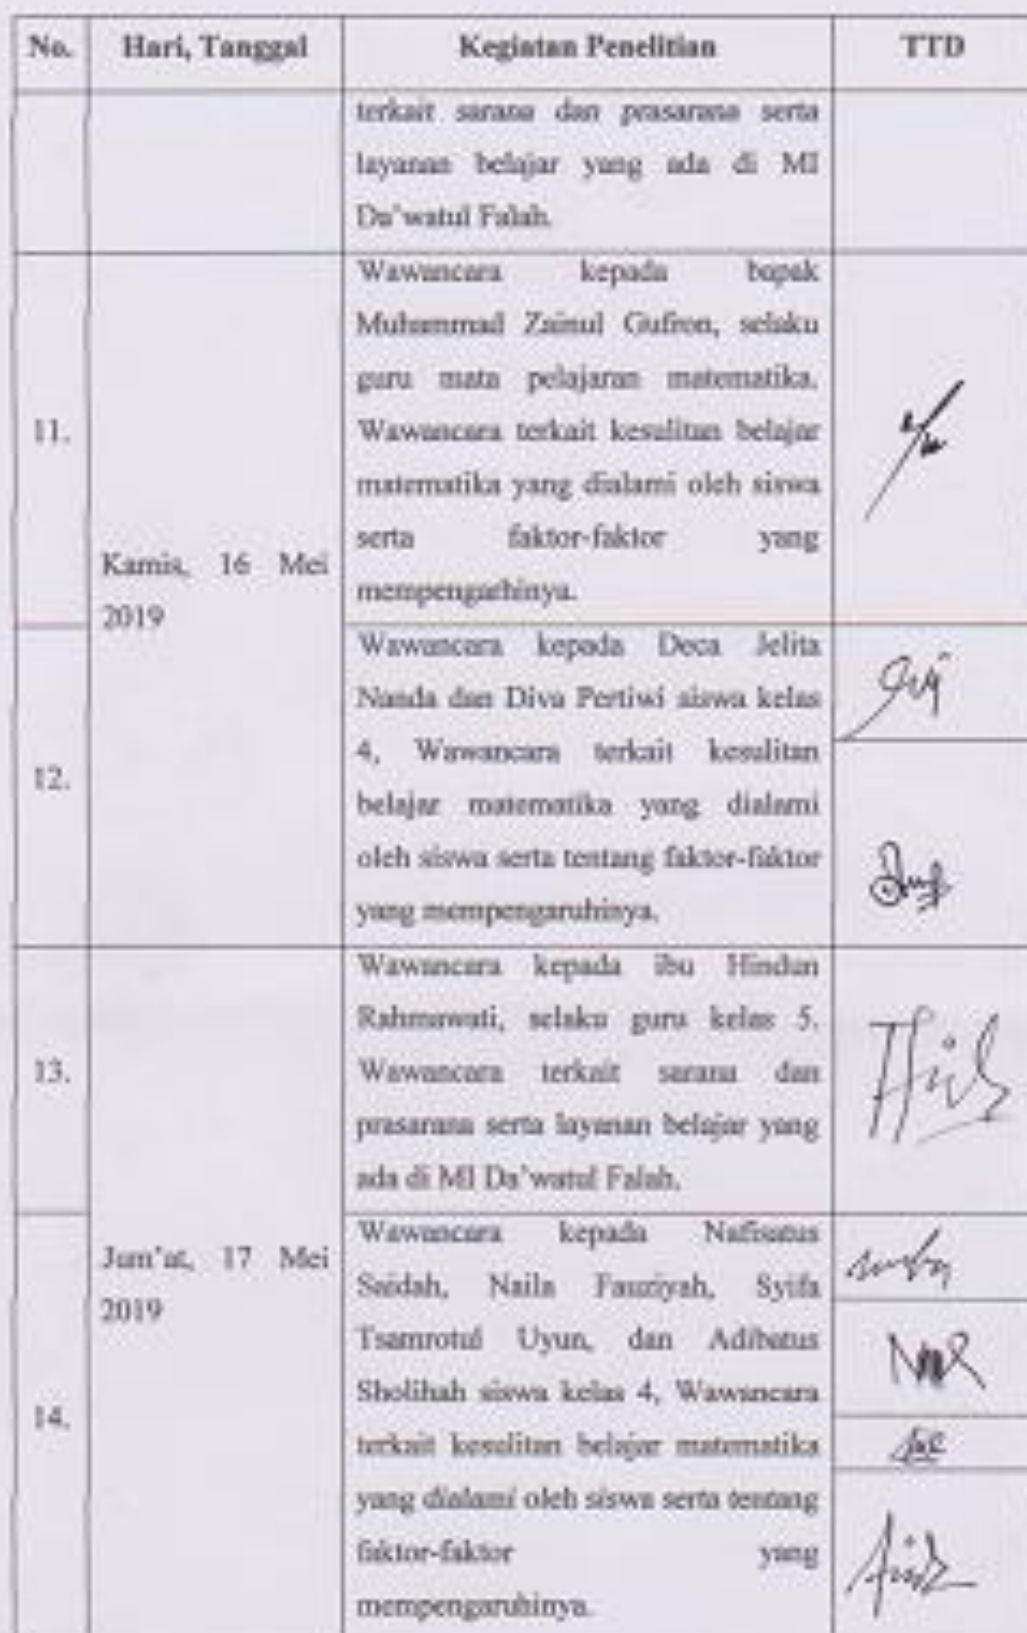 No. Hari, Tanggal Kegiatan Penelitian TTD
terkait sarana dan prasarana serta
layanan belajar yang ada di MI
Da'watul Falah.
11.
Kamis, 16 Mei
2019
Wawancara kepada bapak
Muhammad Zainul Gufron, selaku
guru mata pelajaran matematika.
Wawancara terkait kesulitan belajar
matematika yang dialami oleh siswa
serta faktor-faktor yang
mempengarhinya.
12.
Wawancara kepada Deca Jelita
Nanda dan Diva Pertiwi siswa kelas
4, Wawancara terkait kesulitan
belajar matematika yang dialami
oleh siswa serta tentang faktor-faktor
yang mempengaruhinya.
13.
Jum'at, 17 Mei
2019
Wawancara kepada ibu Hindun
Rahmawati, selaku guru kelas 5.
Wawancara terkait sarana dan
prasarana serta layanan belajar yang
ada di MI Da'watul Falah.
14.
Wawancara kepada Nafisatus
Saidah, Naila Fauziyah, Syifa
Tsamrotul Uyun, dan Adibatus
Sholihah siswa kelas 4, Wawancara
terkait kesulitan belajar matematika
yang dialami oleh siswa serta tentang
faktor-faktor yang
mempengaruhinya.